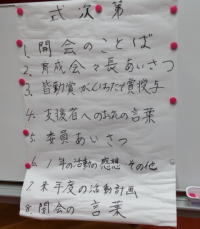 式次第
1. 開会のことば
2. 育成会々長あいさつ
3. 皆勤賞・がんばった賞授与
4. 支援者へのお礼の言葉
5. 委員あいさつ
6. 1年の活動の感想 その他
7. 来年度の活動計画
8. 閉会の 言葉